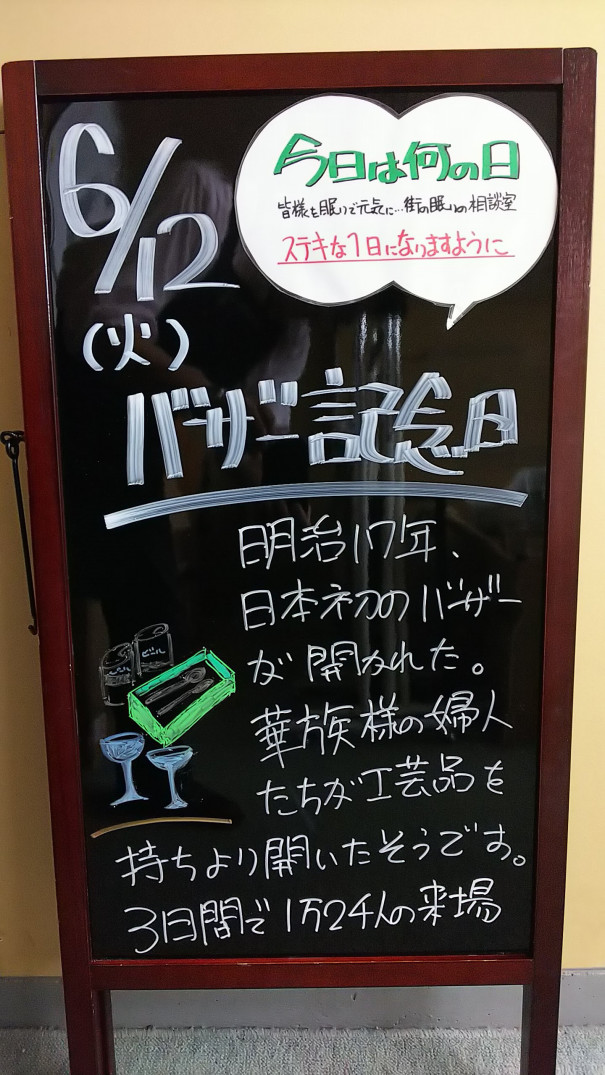 6/12
(火)
今日は何の日
皆様も眠りで元気に…街の眠りの相談室
ステキな1日になりますように
バザー記念日
明治17年、
日本初のバザー
が開かれた。
華族様の婦人
たちが工芸品を
持ちより開いたそうです。
3日間で1万2千人の来場
ビール
ビール